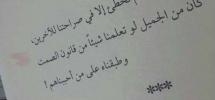 نخطئ إلا في صراحتنا للآخرين.
كان من الجميل لو تعلمنا شيئاً من قانون الصمت
وطبقناه على من أحببناهم !
***